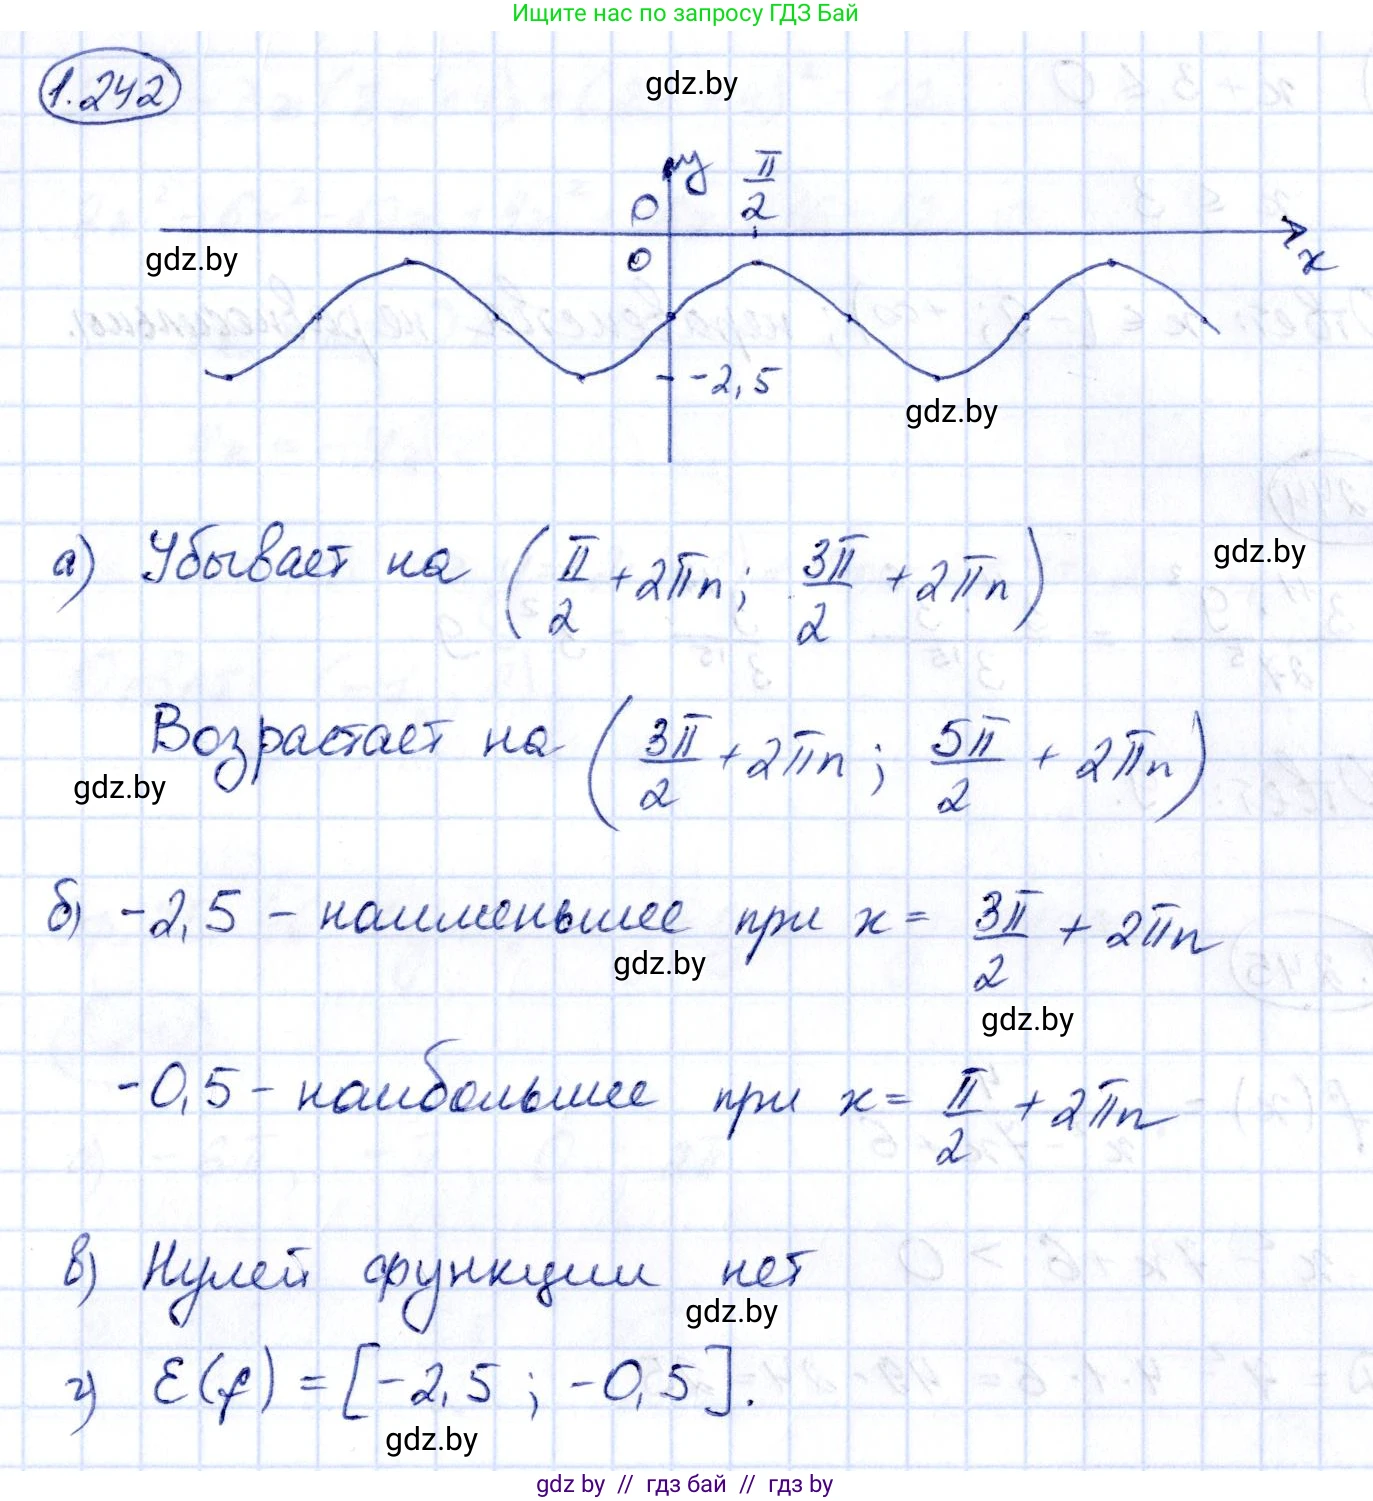 Ищите нас по запросу ГДЗ Бай
1.242
gdz.by
y
π/2
0
gdz.by
0
x
-2,5
gdz.by
а) Убывает на (π/2 + 2πn; 3π/2 + 2πn)
gdz.by
Возрастает на (3π/2 + 2πn; 5π/2 + 2πn)
gdz.by
б) -2,5 - наименьшее при x = 3π/2 + 2πn
gdz.by
gdz.by
-0,5 - наибольшее при x = π/2 + 2πn
в) Нулей функции нет
gdz.by
г) E(f) = [-2,5 ; -0,5].
gdz.by
gdz by // гдз бай // gdz by